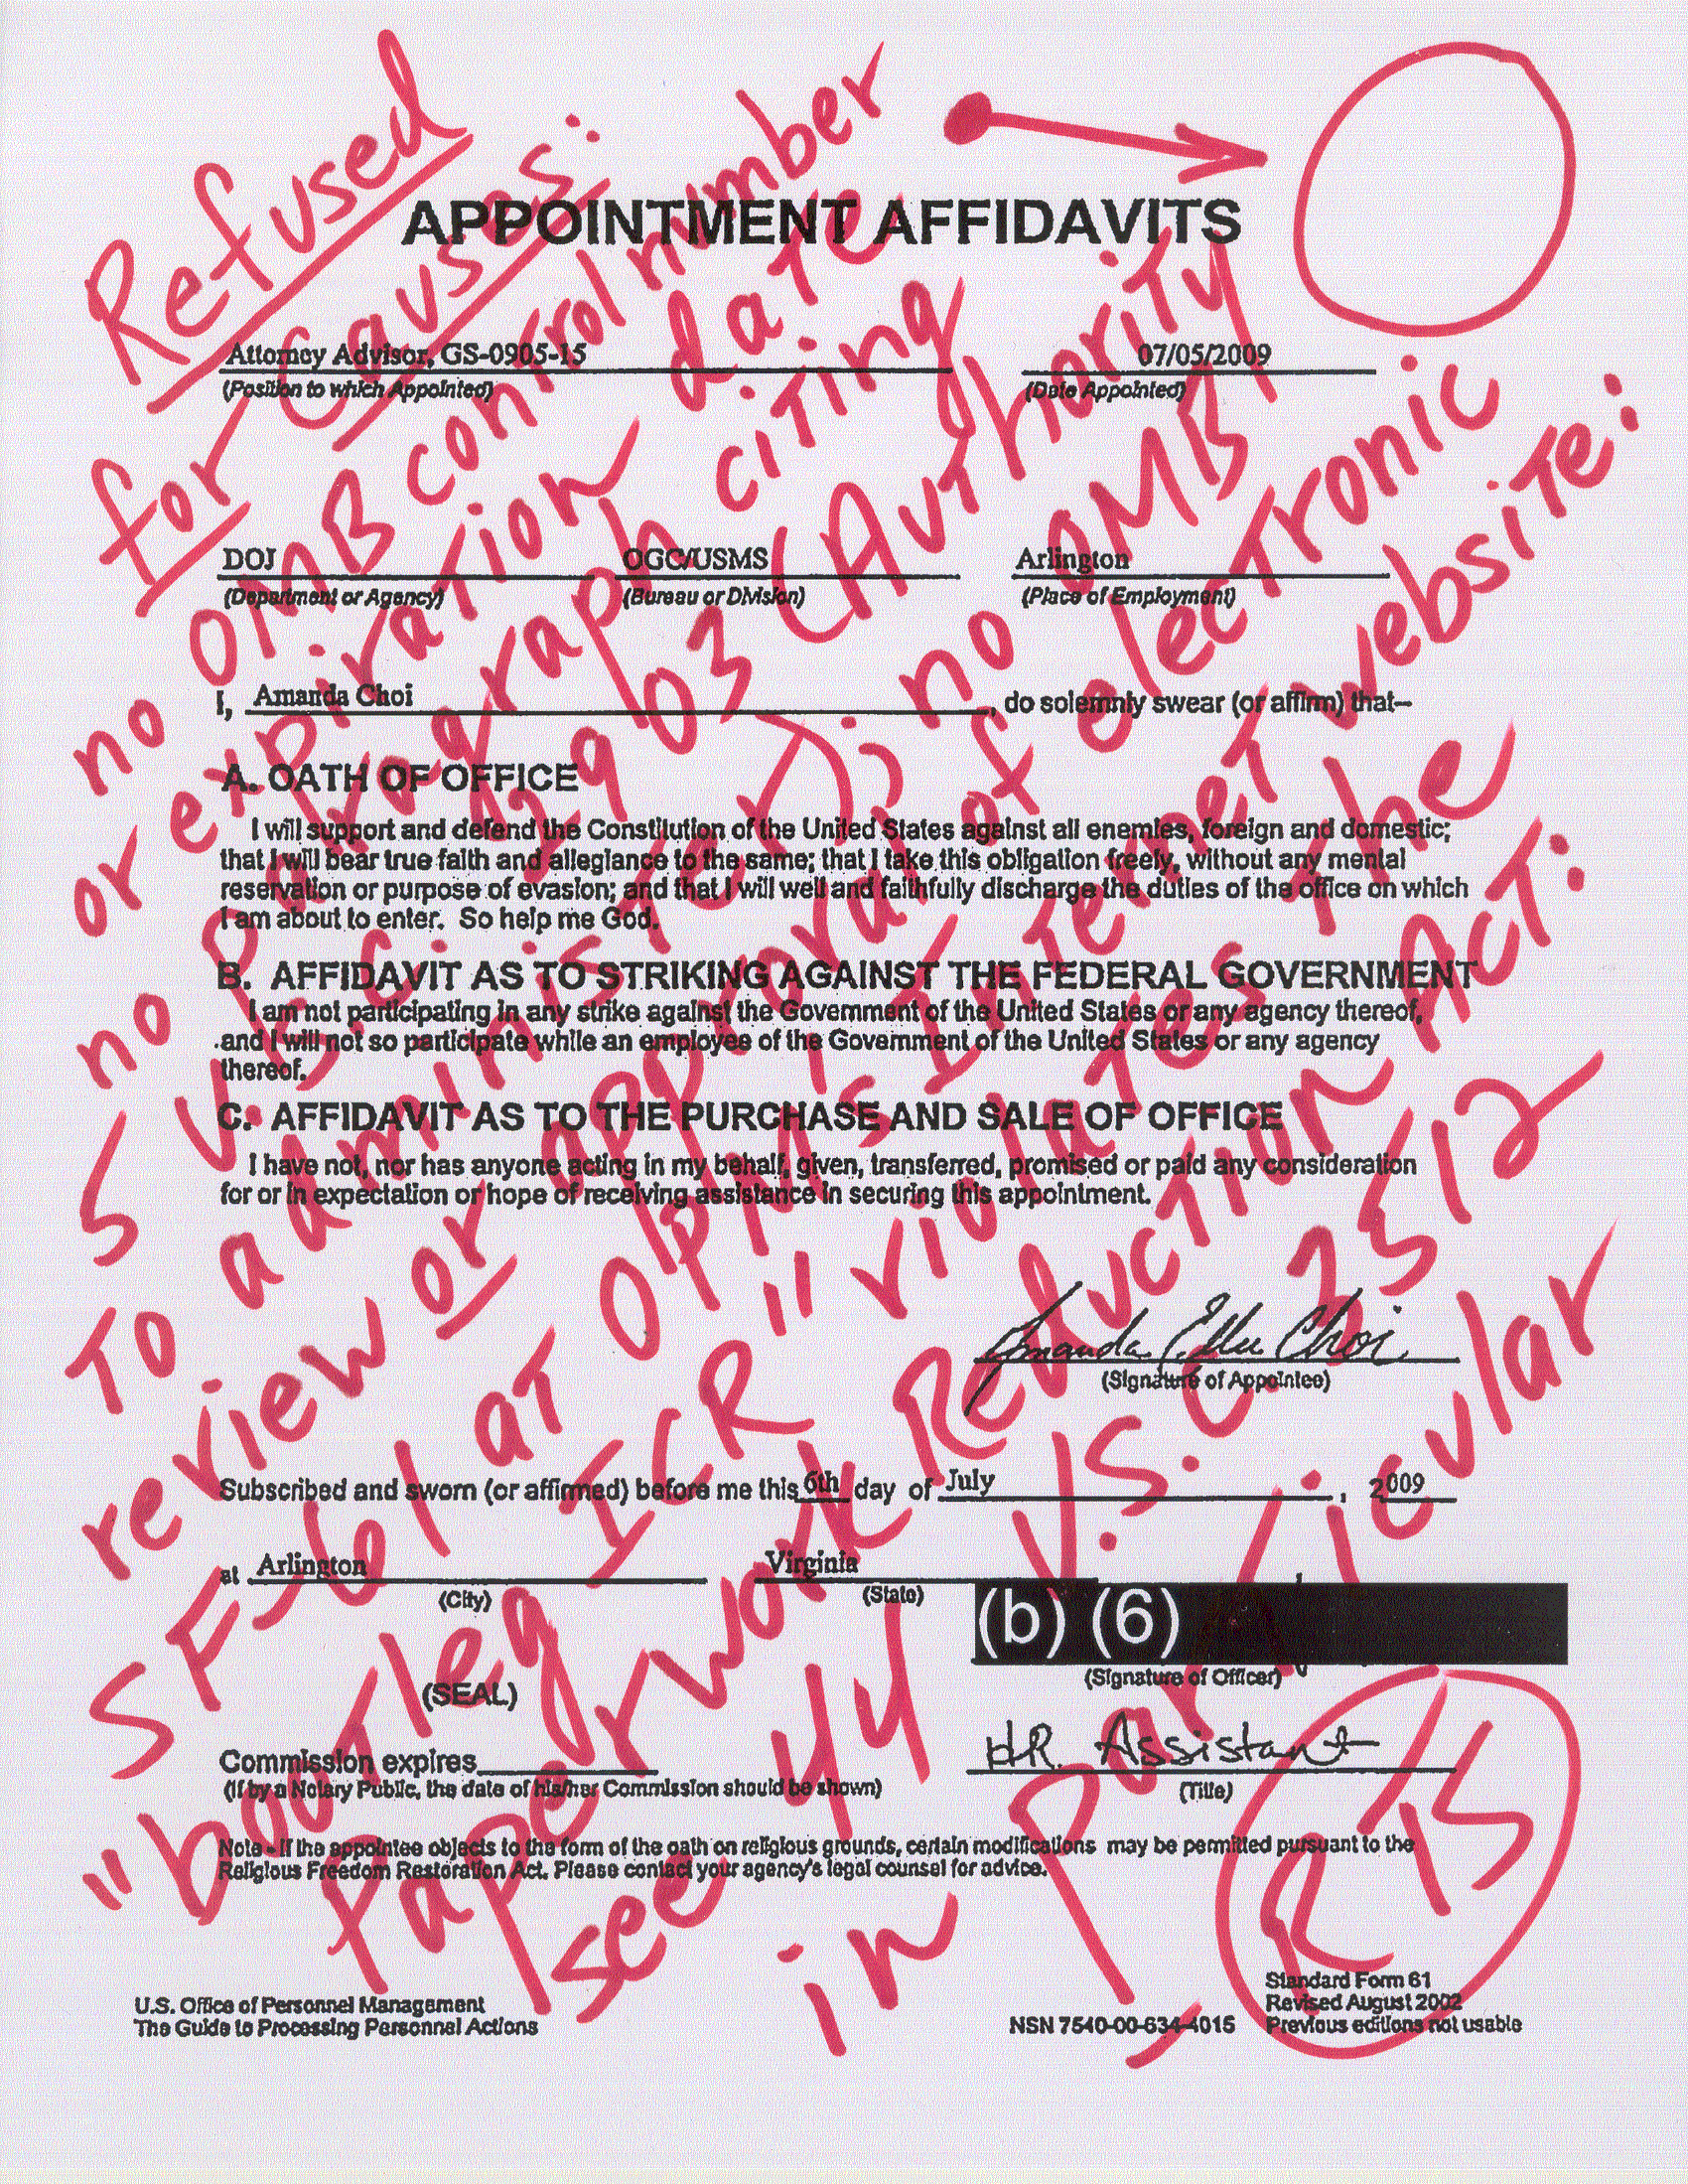 Refused
for Causes:
no OMB control number
or expiration date
no paragraph citing
5 U.S.C. 2903 (Authority
To administer); no OMB
review or approval of electronic
SF-61 at OPM's Internet website:
"bootleg ICR" violates the
Paperwork Reduction Act:
see 44 U.S.C. 3512
in particular
RTS
APPOINTMENT AFFIDAVITS
Attorney Advisor, GS-0905-15 07/05/2009
(Position to which Appointed) (Date Appointed)
DOJ OGC/USMS Arlington
(Department or Agency) (Bureau or Division) (Place of Employment)
I, Amanda Choi , do solemnly swear (or affirm) that--
A. OATH OF OFFICE
I will support and defend the Constitution of the United States against all enemies, foreign and domestic;
that I will bear true faith and allegiance to the same; that I take this obligation freely, without any mental
reservation or purpose of evasion; and that I will well and faithfully discharge the duties of the office on which
I am about to enter. So help me God.
B. AFFIDAVIT AS TO STRIKING AGAINST THE FEDERAL GOVERNMENT
I am not participating in any strike against the Government of the United States or any agency thereof,
and I will not so participate while an employee of the Government of the United States or any agency
thereof.
C. AFFIDAVIT AS TO THE PURCHASE AND SALE OF OFFICE
I have not, nor has anyone acting in my behalf, given, transferred, promised or paid any consideration
for or in expectation or hope of receiving assistance in securing this appointment.
Amanda Ellen Choi
(Signature of Appointee)
Subscribed and sworn (or affirmed) before me this 6th day of July , 2009
at Arlington Virginia
(City) (State)
(b) (6)
(Signature of Officer)
(SEAL)
Commission expires H.R. Assistant
(If by a Notary Public, the date of his/her Commission should be shown) (Title)
Note - If the appointee objects to the form of the oath on religious grounds, certain modifications may be permitted pursuant to the
Religious Freedom Restoration Act. Please contact your agency's legal counsel for advice.
U.S. Office of Personnel Management
The Guide to Processing Personnel Actions
NSN 7540-00-634-4015
Standard Form 61
Revised August 2002
Previous editions not usable